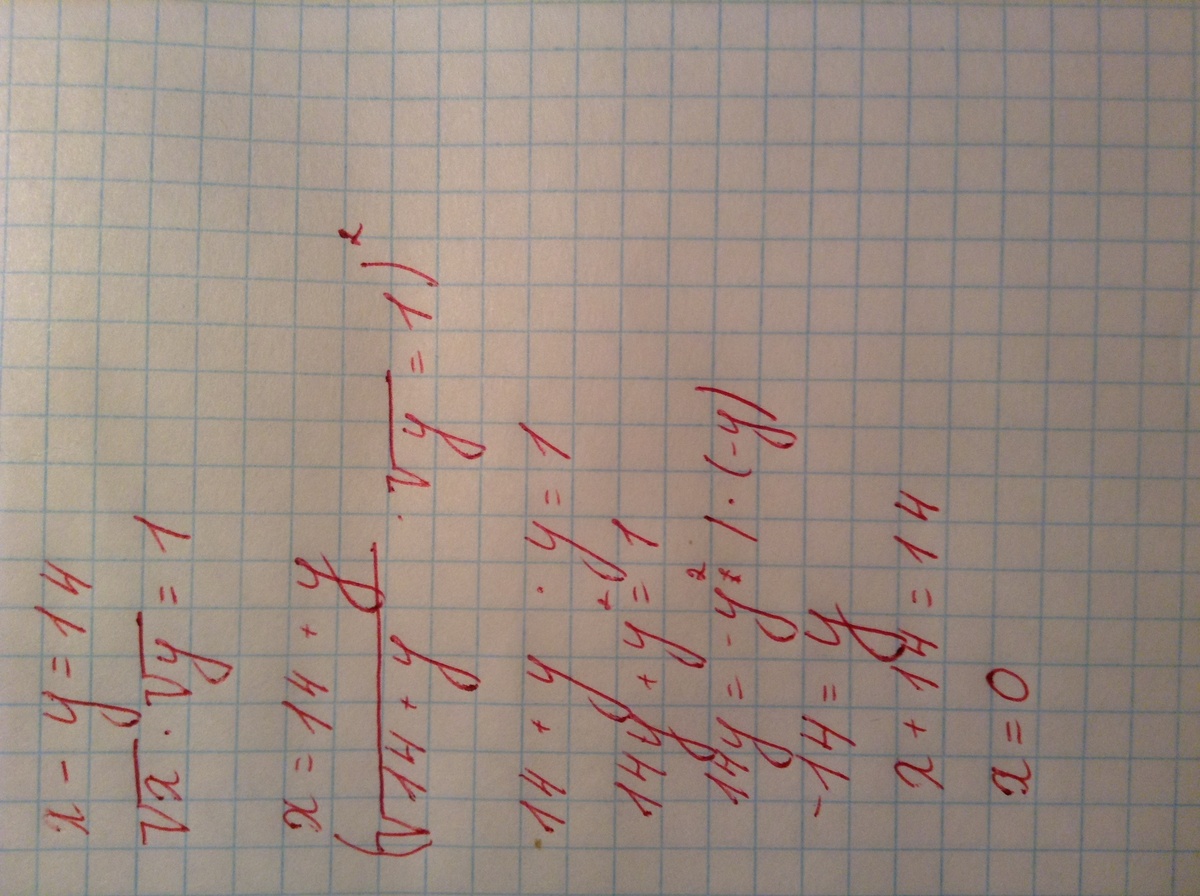 x - y = 14
√x · √y = 1
x = 14 + y
(√14 + y · √y = 1)²
14 + y · y = 1
14y + y² = 1
14y = -y² | · (-y)
-14 = y
x + 14 = 14
x = 0